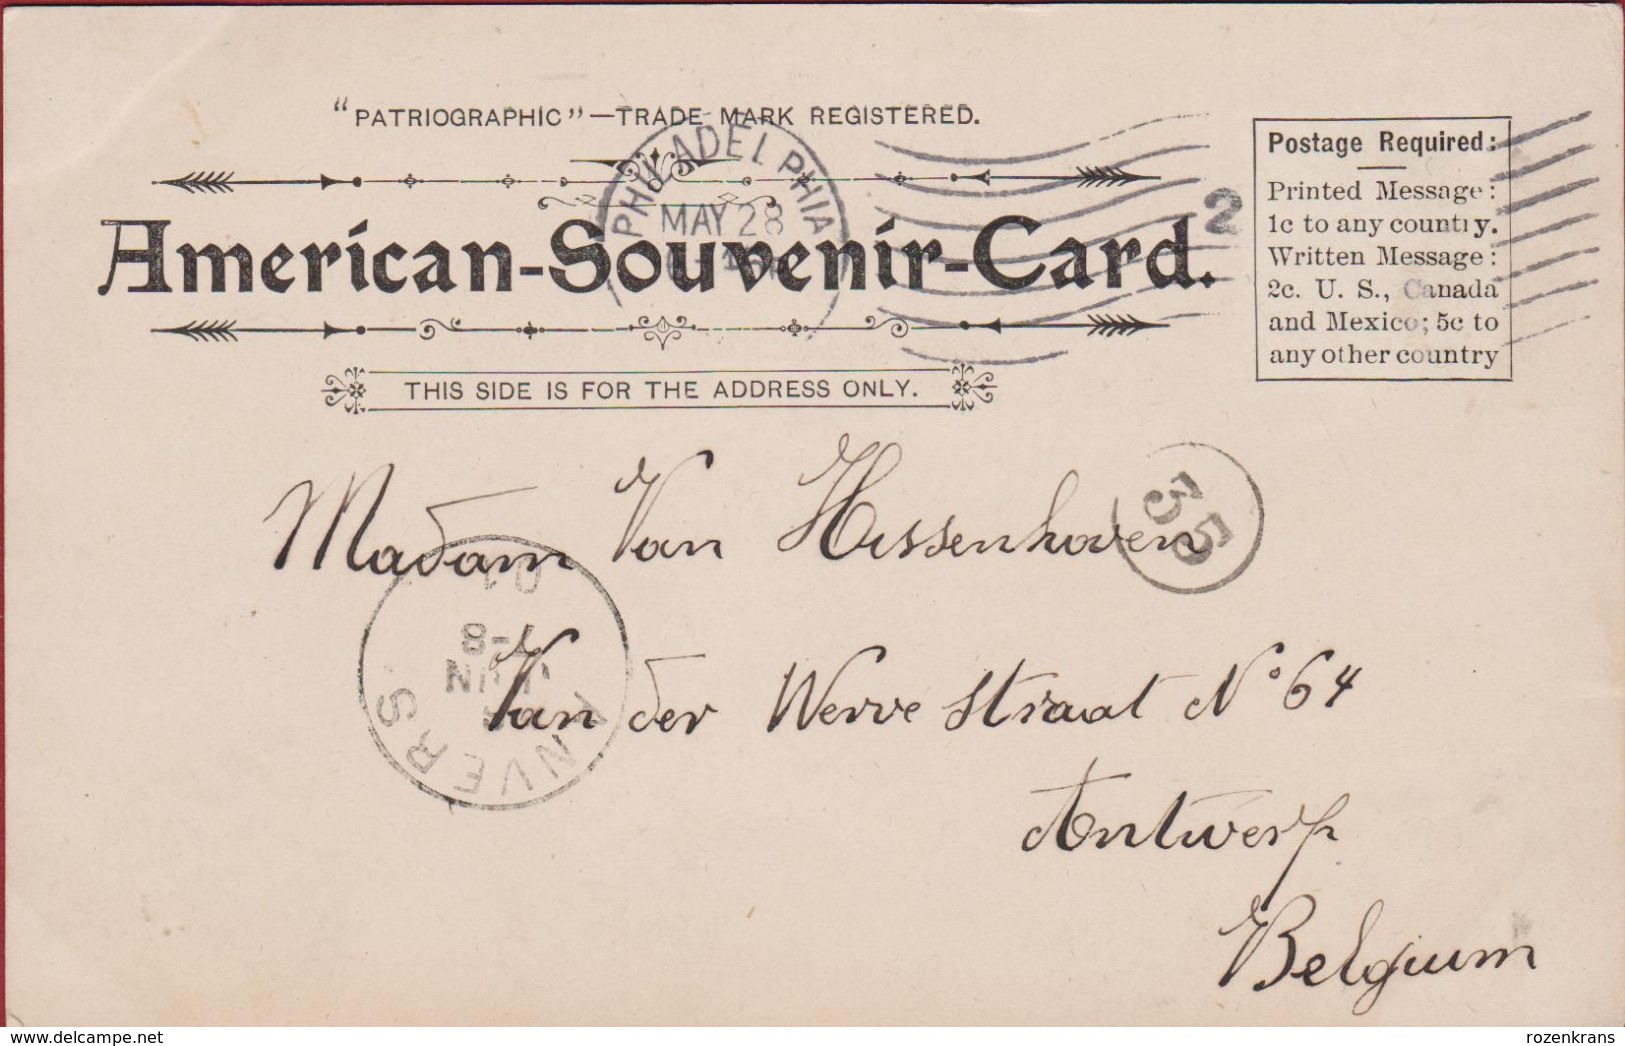 "PATRIOGRAPHIC"—TRADE MARK REGISTERED.
American-Souvenir-Card.
THIS SIDE IS FOR THE ADDRESS ONLY.
PHILADELPHIA
MAY 28
2
Postage Required:
Printed Message:
1c to any country.
Written Message:
2c. U. S., Canada
and Mexico; 5c to
any other country
Madam Van Hissenhoven
35
Van der Werve Straat No 64
Antwerp
Belgium
ANVERS
7-8
01
delcampe.net
rozenkrans